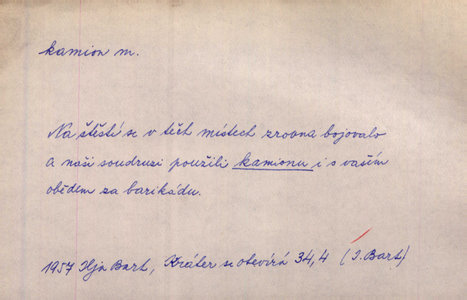 kamion m.
Na štěstí se v těch místech zrovna bojovalo
a naši soudruzi použili kamionu i s vaším
obědem za barikádu.
1957 Ilja Bart, Kráter se otevírá 34,4 (I. Bart)